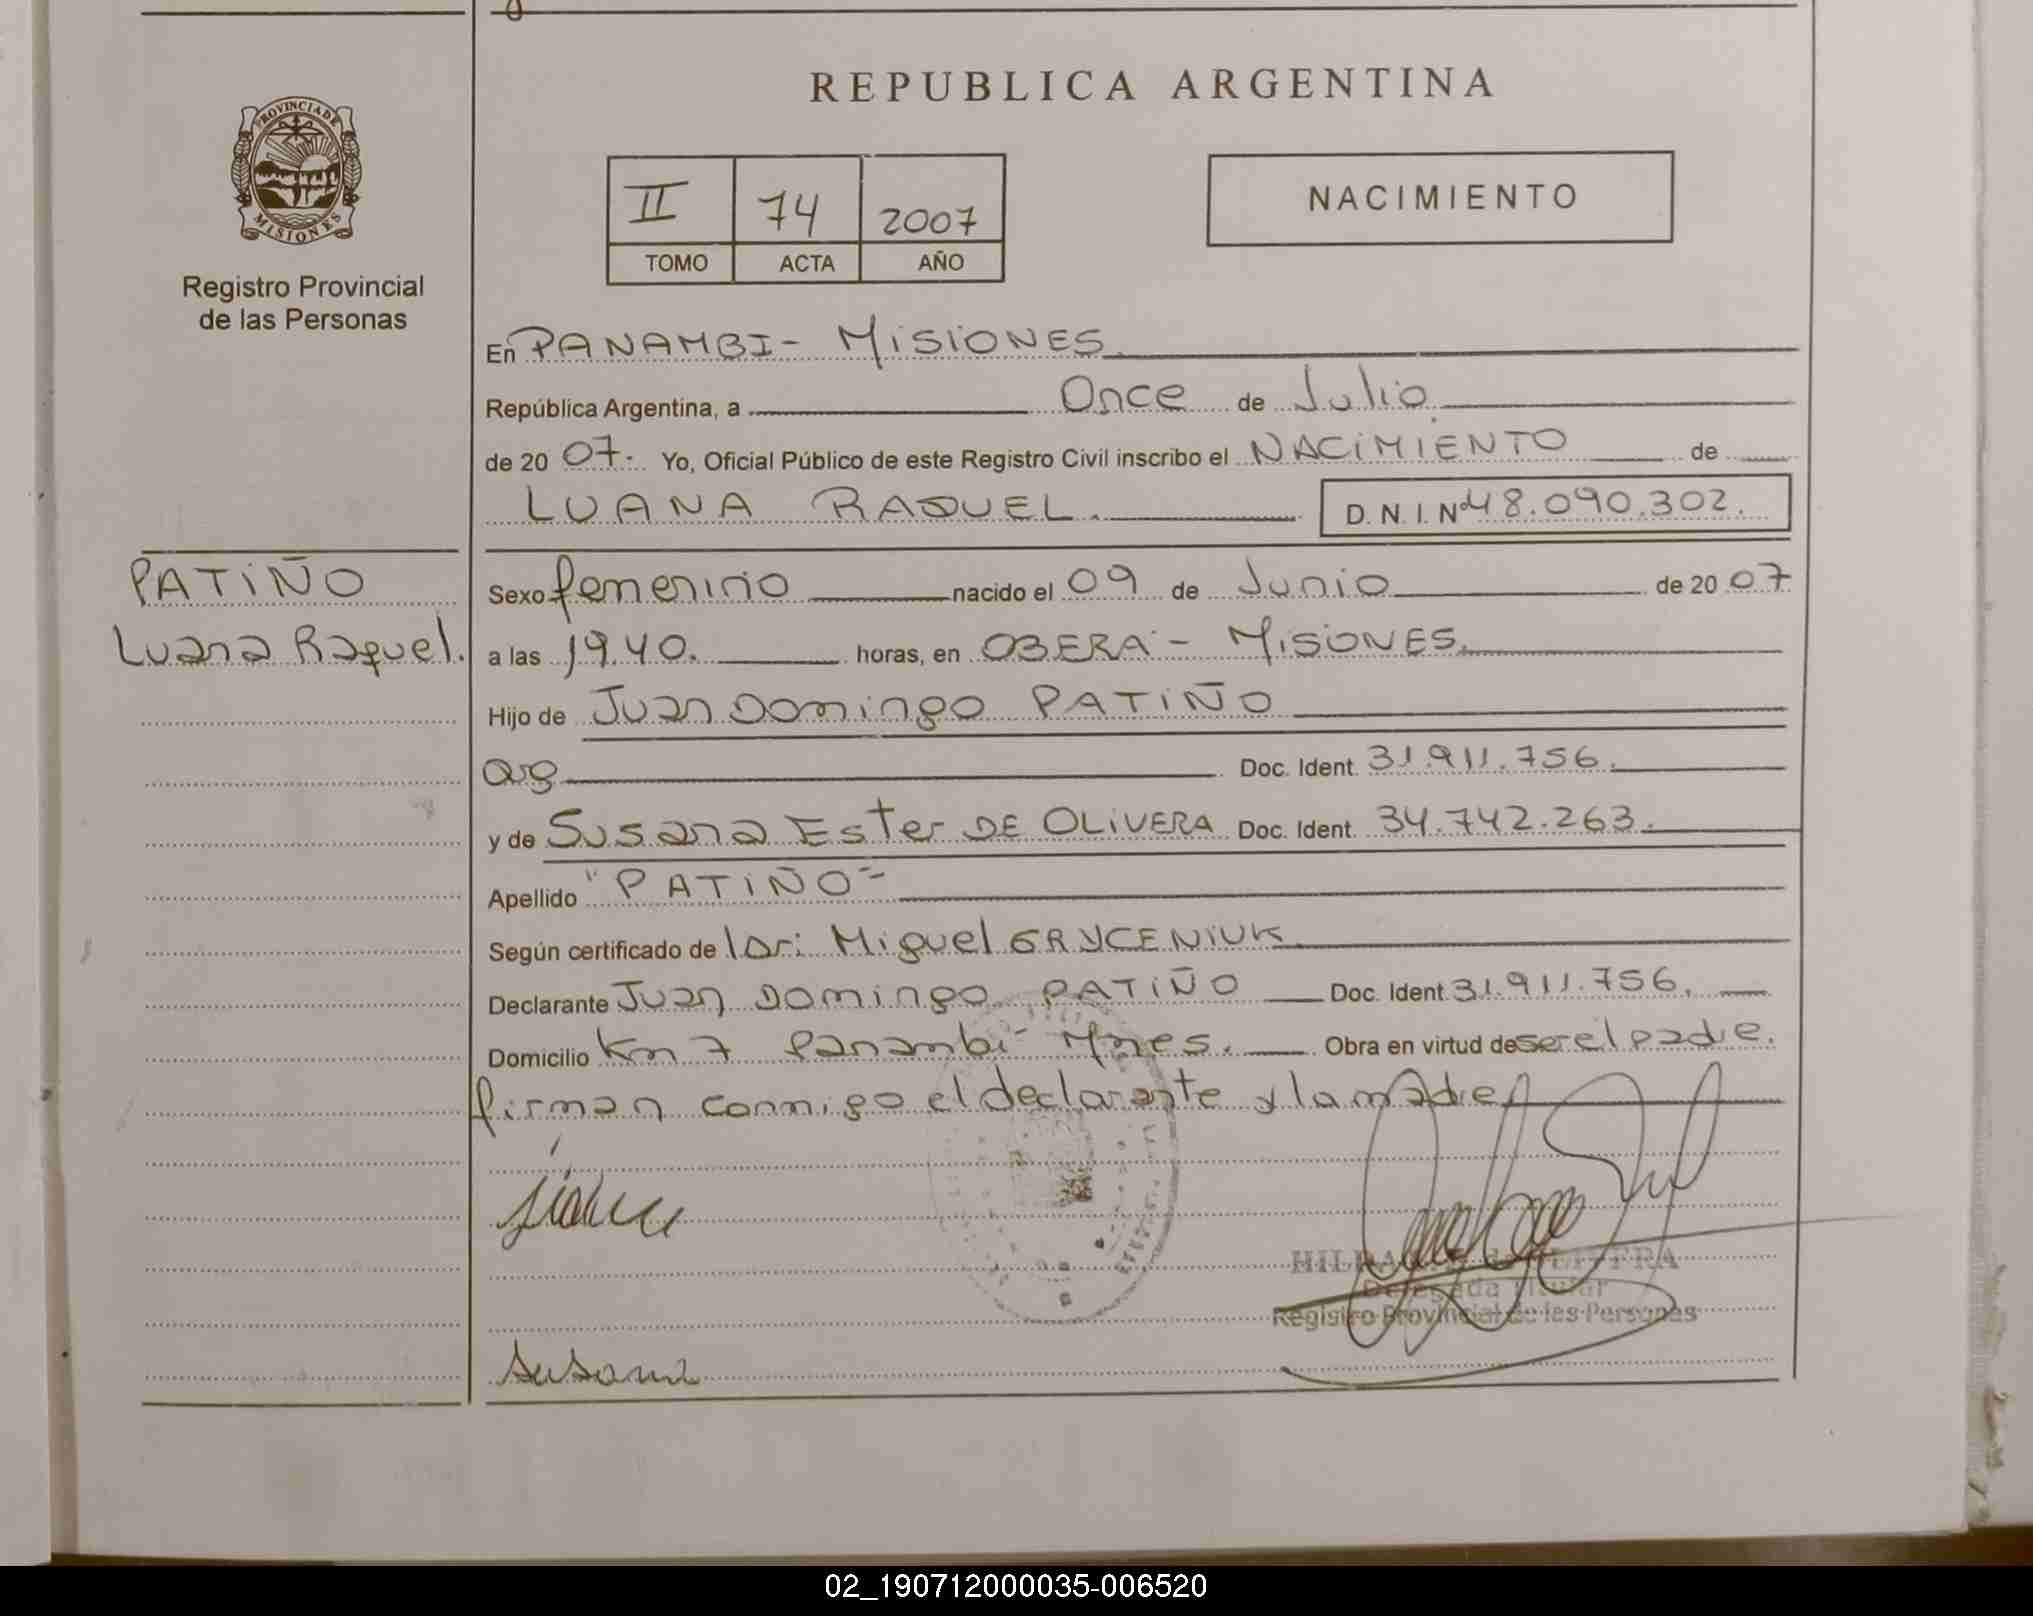 REPUBLICA ARGENTINA
PROVINCIA DE MISIONES
Registro Provincial
de las Personas
II 74 2007
TOMO ACTA AÑO
NACIMIENTO
En PANAMBI - MISIONES.
República Argentina, a Once de Julio
de 20 07. Yo, Oficial Público de este Registro Civil inscribo el NACIMIENTO de
LUANA RAQUEL. D. N. I. Nº 48.090.302.
PATIÑO
Luana Raquel.
Sexo femenino nacido el 09 de Junio de 20 07
a las 19.40. horas, en OBERA - MISIONES.
Hijo de Juan Domingo PATIÑO
arg Doc. Ident. 31.911.756.
y de Susana Ester DE OLIVERA Doc. Ident. 34.742.263.
Apellido "PATIÑO"
Según certificado de Iori Miguel GRYCENIUK
Declarante Juan Domingo PATIÑO Doc. Ident. 31.911.756.
Domicilio Km 7 Panambi Mnes. Obra en virtud de ser el padre.
firman conmigo el declarante y la madre
Delegada Titular
Registro Provincial de las Personas
Susana
02_190712000035-006520